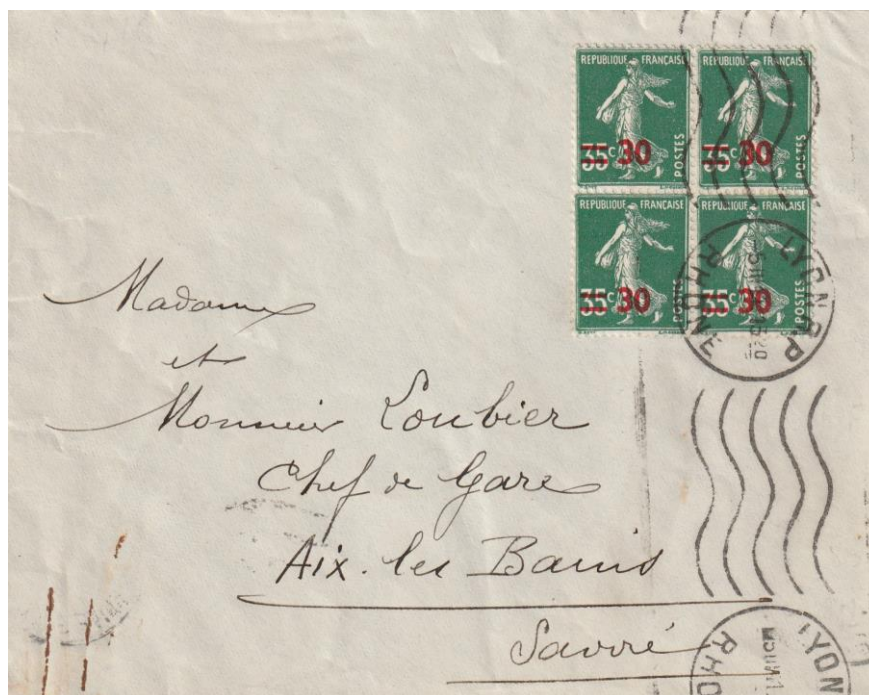 REPUBLIQUE FRANÇAISE
35c 30
POSTES
REPUBLIQUE FRANÇAISE
35c 30
POSTES
REPUBLIQUE FRANÇAISE
35c 30
POSTES
REPUBLIQUE FRANÇAISE
35c 30
POSTES
LYON R.P
RHONE
Madame
et
Monsieur Loubier
Chef de Gare
Aix. les Bains
Savoie
LYON
RHO